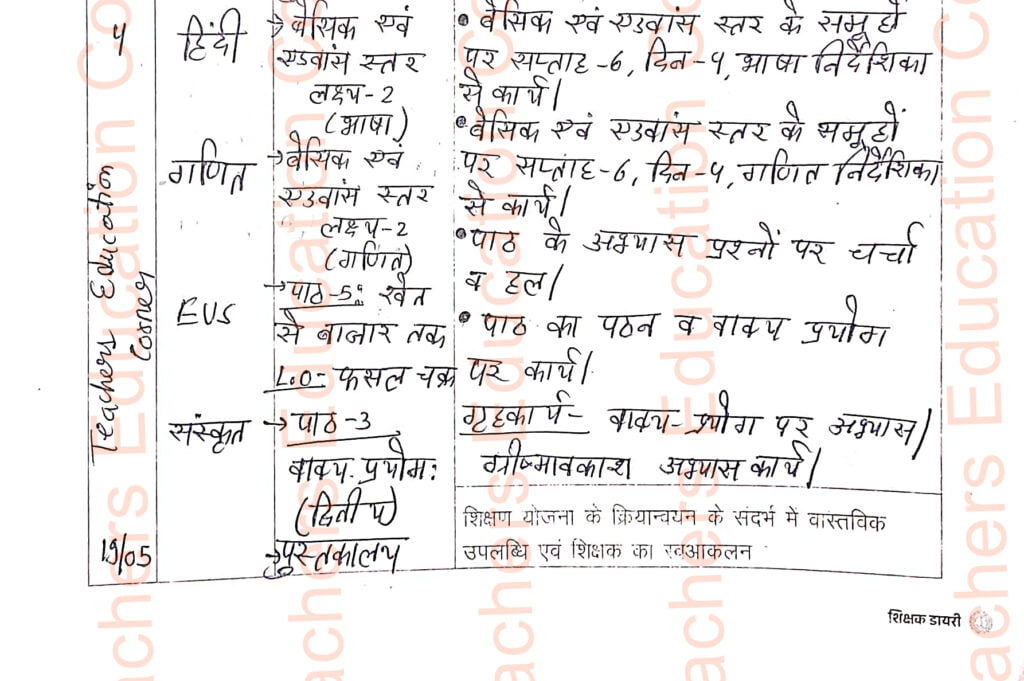 4
हिंदी
→ बेसिक एवं
एडवांस स्तर
लक्ष्य-2
(भाषा)
• बेसिक एवं एडवांस स्तर के समूहों
पर सप्ताह-6, दिन-4, भाषा निर्देशिका
से कार्य।
गणित
→ बेसिक एवं
एडवांस स्तर
लक्ष्य-2
(गणित)
• बेसिक एवं एडवांस स्तर के समूहों
पर सप्ताह-6, दिन-4, गणित निर्देशिका
से कार्य।
EVS
→ पाठ-5: खेत
से बाजार तक
L.O- फसल चक्र
• पाठ के अभ्यास प्रश्नों पर चर्चा
व हल।
संस्कृत
→ पाठ-3
वाक्य प्रयोग:
(द्वितीय)
→ पुस्तकालय
• पाठ का पठन व वाक्य प्रयोग
पर कार्य।
गृहकार्य- वाक्य-प्रयोग पर अभ्यास।
ग्रीष्मावकाश अभ्यास कार्य।
19/05
शिक्षण योजना के क्रियान्वयन के संदर्भ में वास्तविक
उपलब्धि एवं शिक्षक का स्वआकलन
शिक्षक डायरी
Teachers Education
Corner
Teachers Education Co
achers Education Co
achers Education Co
achers Education Co
achers Education Co